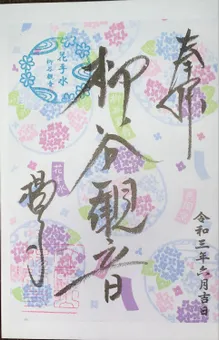 奉拝
柳谷観音
楊谷寺
令和三年六月吉日
花手水
柳谷観音